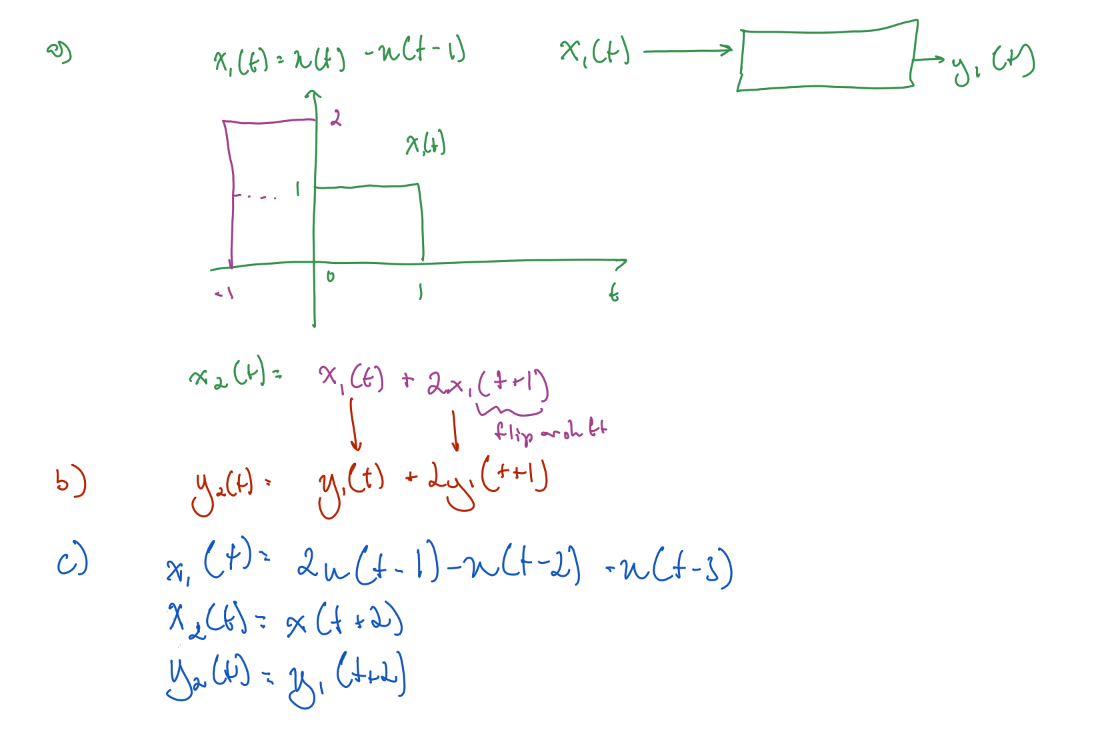 a) x₁(t) = u(t) - u(t-1) x₁(t) y₁(t)
2
x₁(t)
1
0
-1 1 t
x₂(t) = x₁(t) + 2x₁(t+1)
flip
b) y₂(t) = y₁(t) + 2y₁(t+1)
c) x₁(t) = 2u(t-1) - u(t-2) - u(t-3)
x₂(t) = x(t+2)
y₂(t) = y₁(t+2)